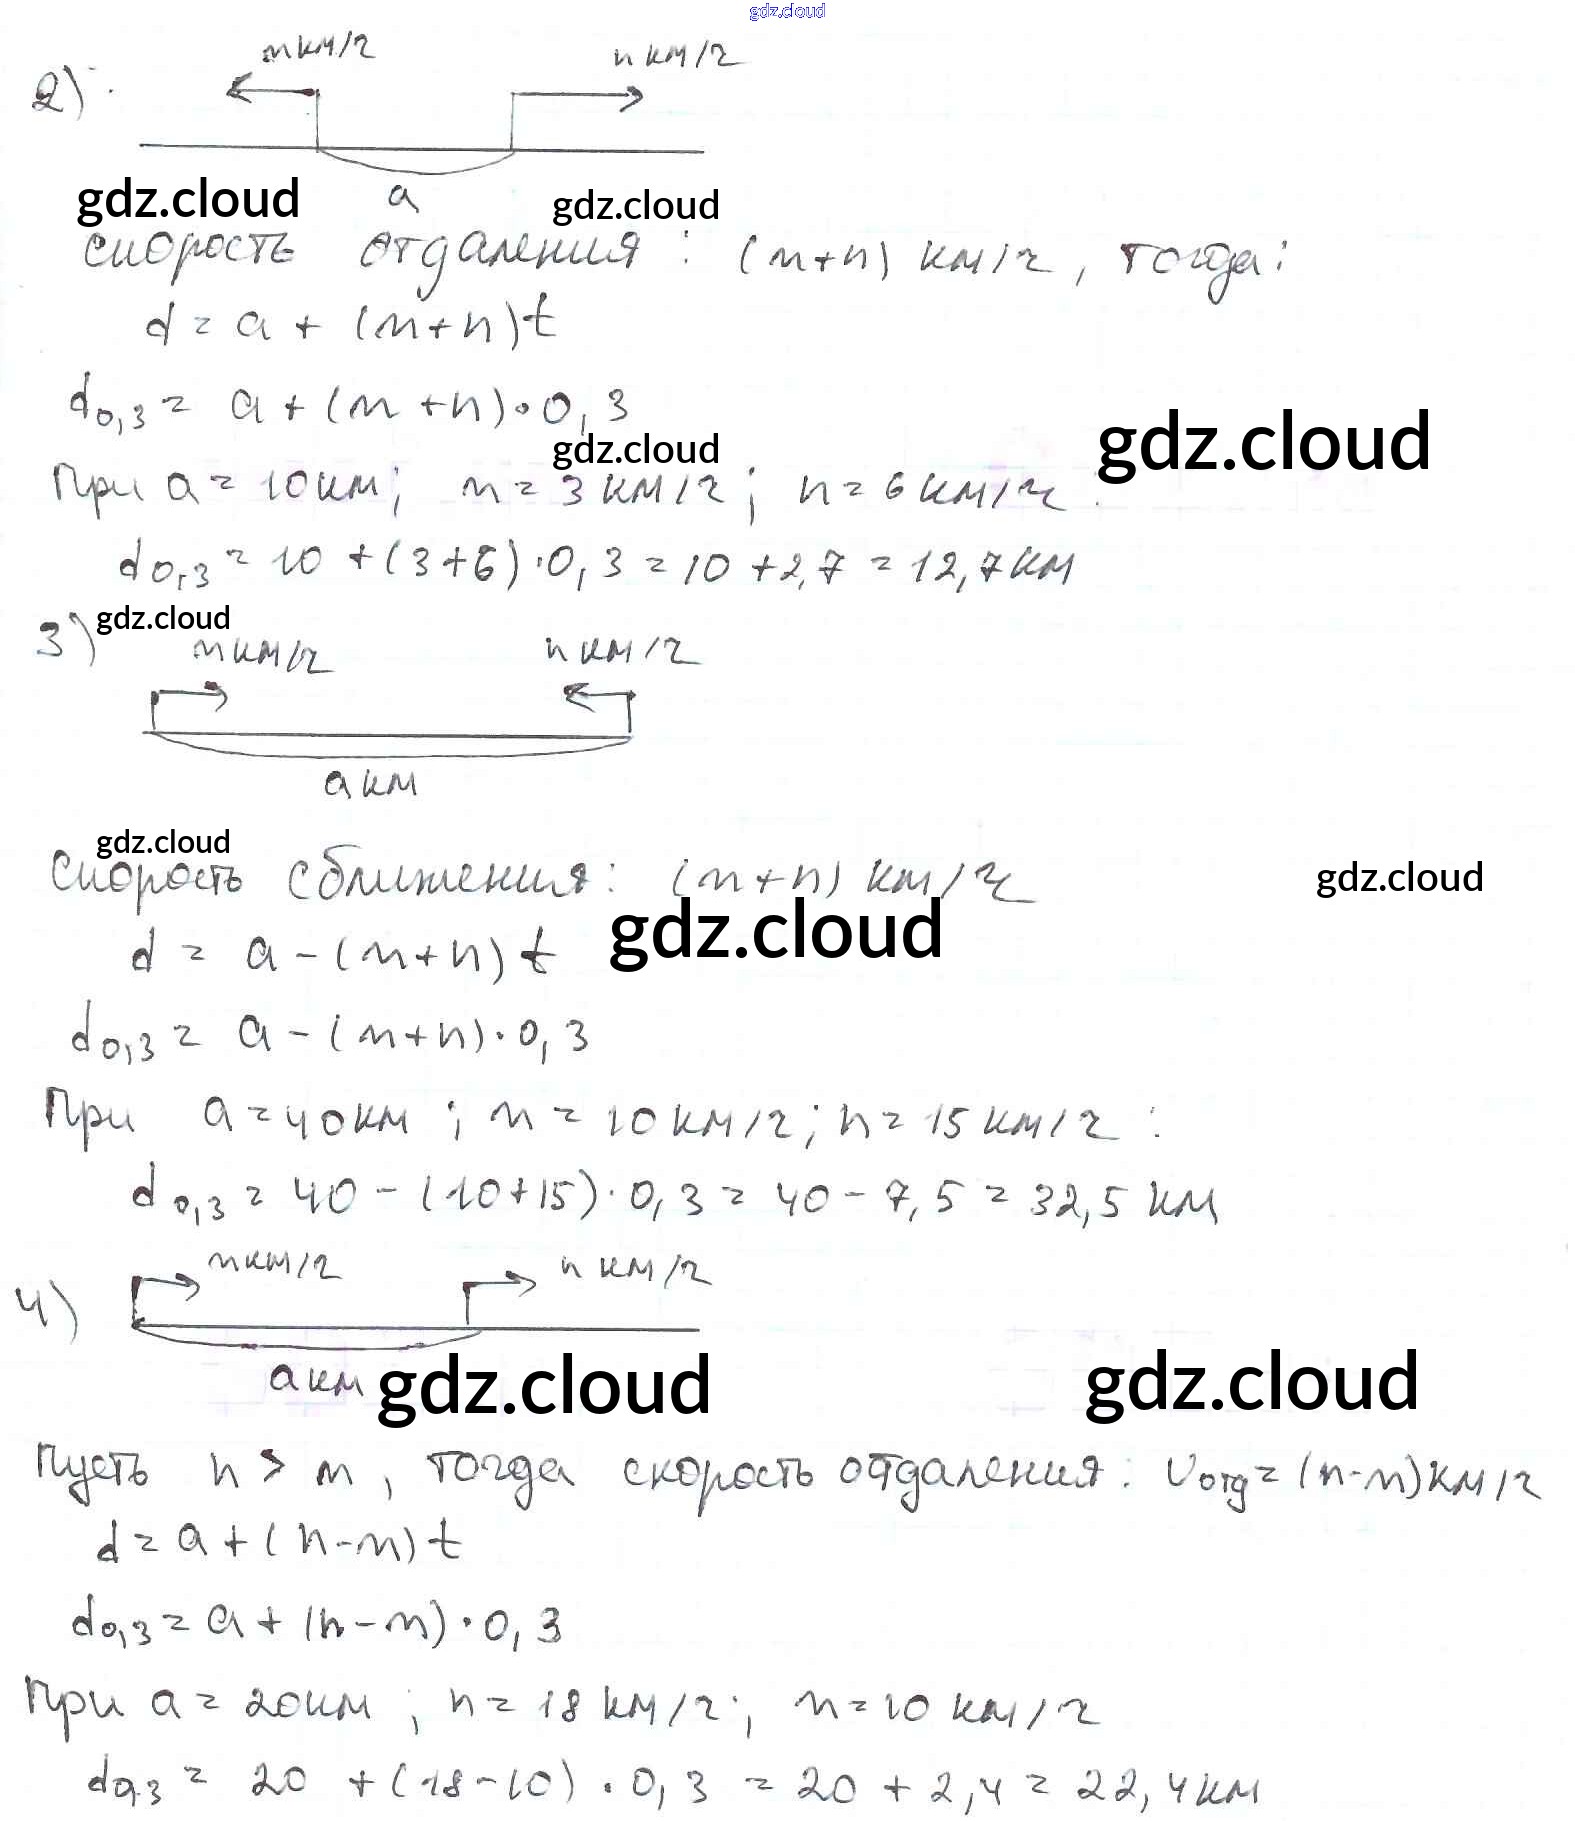 gdz.cloud
m км/ч n км/ч
2)
gdz.cloud a gdz.cloud
скорость отдаления: (m+n) км/ч, тогда:
d = a + (m+n)t
d0,3 = a + (m+n)·0,3
gdz.cloud gdz.cloud
При a = 10 км; m = 3 км/ч; n = 6 км/ч:
d0,3 = 10 + (3+6)·0,3 = 10 + 2,7 = 12,7 км
3) gdz.cloud
m км/ч n км/ч
a км
gdz.cloud
Скорость сближения: (m+n) км/ч gdz.cloud
d = a - (m+n)t gdz.cloud
d0,3 = a - (m+n)·0,3
При a = 40 км; m = 10 км/ч; n = 15 км/ч:
d0,3 = 40 - (10+15)·0,3 = 40 - 7,5 = 32,5 км
4) m км/ч n км/ч
a км gdz.cloud gdz.cloud
Пусть n > m, тогда скорость отдаления: υотд = (n-m) км/ч
d = a + (n-m)t
d0,3 = a + (n-m)·0,3
При a = 20 км; n = 18 км/ч; m = 10 км/ч
d0,3 = 20 + (18-10)·0,3 = 20 + 2,4 = 22,4 км